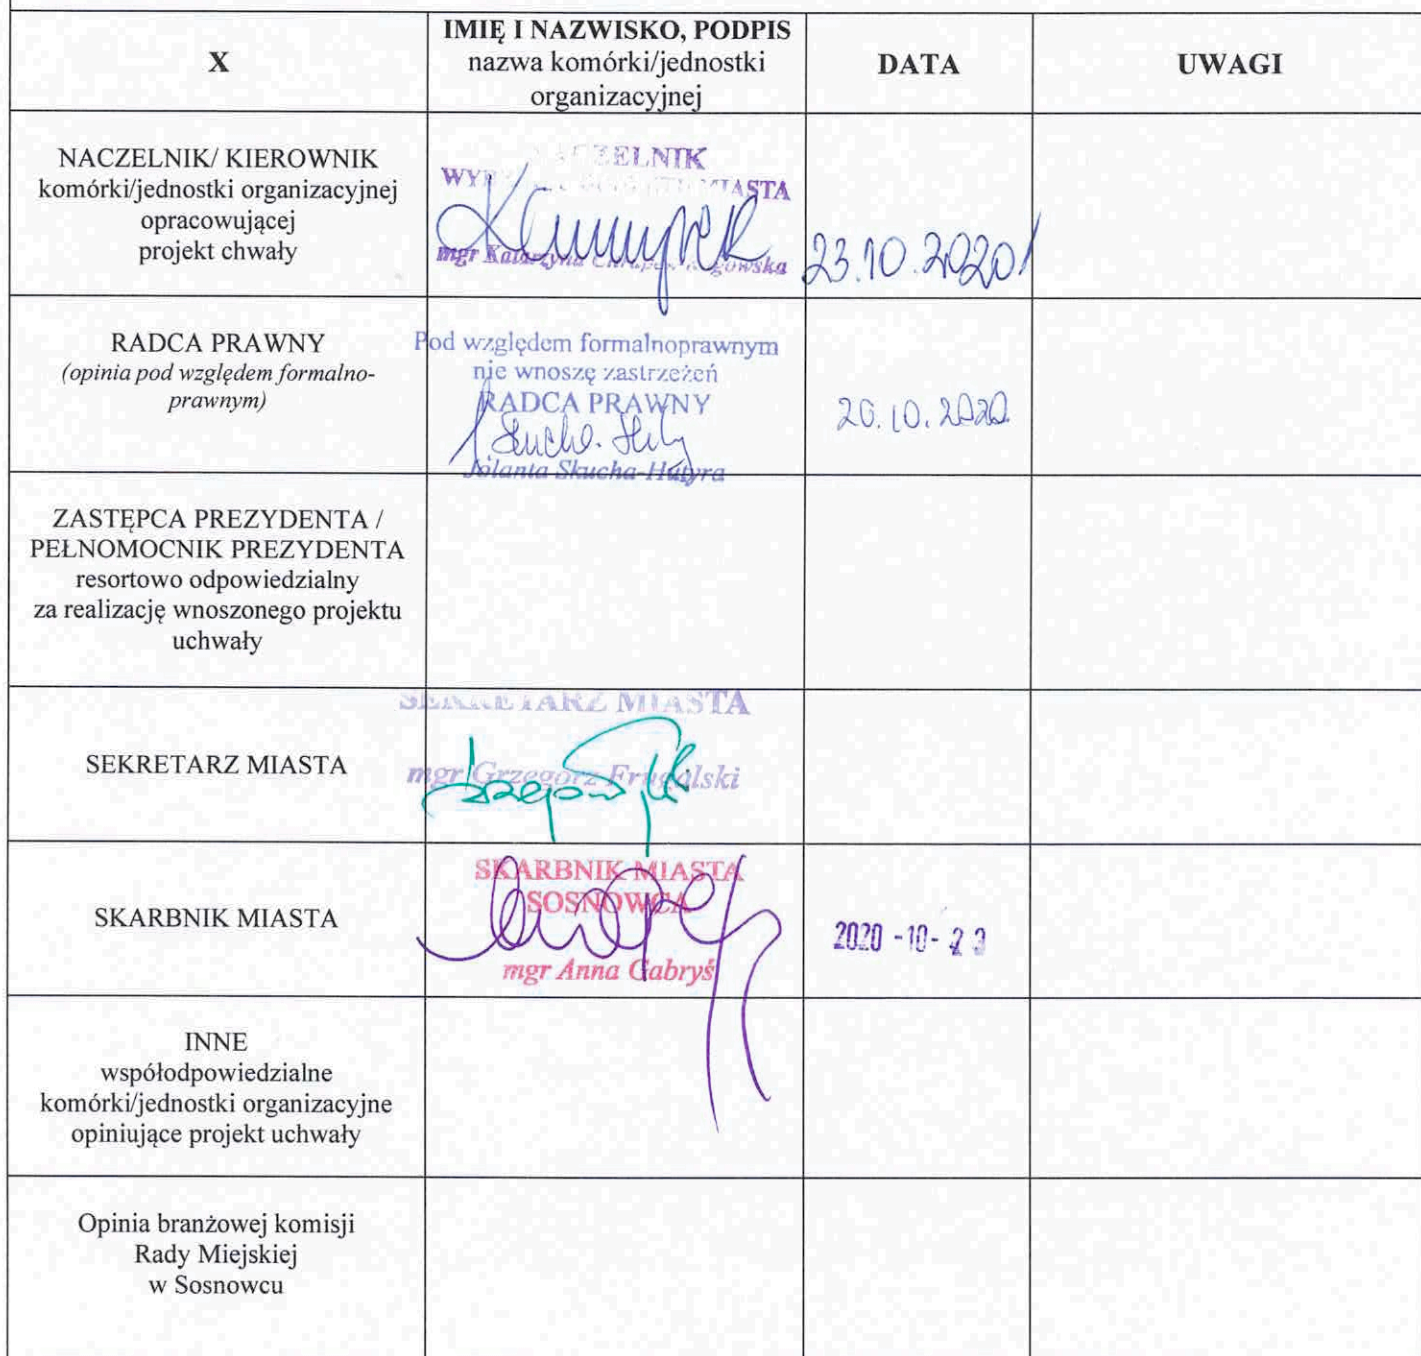 X
IMIĘ I NAZWISKO, PODPIS
nazwa komórki/jednostki
organizacyjnej
DATA
UWAGI
NACZELNIK/ KIEROWNIK
komórki/jednostki organizacyjnej
opracowującej
projekt chwały
NACZELNIK
MIASTA
mgr Katarzyna
23.10.2020
RADCA PRAWNY
(opinia pod względem formalno-
prawnym)
Pod względem formalnoprawnym
nie wnoszę zastrzeżeń
RADCA PRAWNY
Jolanta Skucha-Hutyra
10.2020
ZASTĘPCA PREZYDENTA /
PEŁNOMOCNIK PREZYDENTA
resortowo odpowiedzialny
za realizację wnoszonego projektu
uchwały
SEKRETARZ MIASTA
SEKRETARZ MIASTA
mgr Grzegorz
SKARBNIK MIASTA
SKARBNIK MIASTA
SOSNOWCA
mgr Anna Gabryś
2020 -10-
INNE
współodpowiedzialne
komórki/jednostki organizacyjne
opiniujące projekt uchwały
Opinia branżowej komisji
Rady Miejskiej
w Sosnowcu